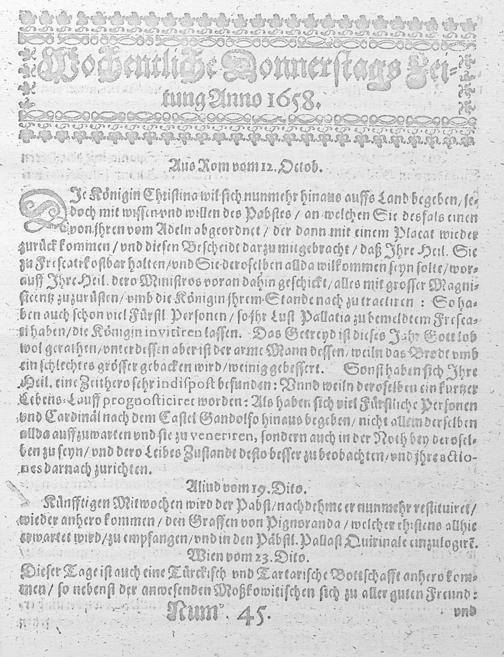 Wochentliche Donnerstags Zei-
tung Anno 1658.
Aus Rom vom 12. Octob.
DJe Königin Christina wil sich nunmehr hinaus auffs Land begeben / je-
doch mit wissen vnd willen des Pabstes / an welchen Sie desfals einen
von jhren vom Adeln abgeordnet / der dann mit einem Placat wieder
zurück kommen / vnd diesen Bescheidt darzu mitgebracht / daß Jhre Heil. Sie
zu Frescati kostbar halten / vnd Sie deroselben allda wilkommen seyn solte / wor-
auff Jhre Heil. dero Ministros voran dahin geschickt / alles mit grosser Magni-
ficentz zuzurüsten / vmb die Königin jhrem Stande nach zu tractiren : So ha-
ben auch schon viel Fürstl Personen / so jhr Lust Pallatia zu bemeldtem Fresca-
ti haben / die Königin invitiren lassen. Das Getreyd ist dieses Jahr Gott lob
wol gerathen / vnterdessen aber ist der arme Mann dessen / weiln das Brodt vmb
ein schlechtes grösser gebacken wird / weinig gebessert. Sonst haben sich Jhre
Heil. eine Zeithero sehr indispost befunden : Vnnd weiln deroselben ein kurtzer
Lebens-Lauff prognosticiret worden : Als haben sich viel Fürstliche Personen
vnd Cardinäl nach dem Castel Gandolfo hinaus begeben / nicht allein derselben
allda auffzuwarten vnd sie zu veneriren, sondern auch in der Noth bey derosel-
ben zu seyn / vnd dero Leibes Zustandt desto besser zu beobachten / vnd jhre actio-
nes darnach zurichten.
Aliud vom 19. Dito.
Künfftigen Mitwochen wird der Pabst / nachdehme er nunmehr restituiret /
wieder anhero kommen / den Graffen von Pignoranda / welcher ehistens allhie
erwartet wird / zu empfangen / vnd in den Päbstl. Pallast Quirinale einzulogirẽ.
Wien vom 23. Dito.
Dieser Tage ist auch eine Türckisch vnd Tartarische Bottschafft anhero kom-
men / so nebenst der anwesenden Moßkowitischen sich zu aller guten Freund:
Num. 45. vnd